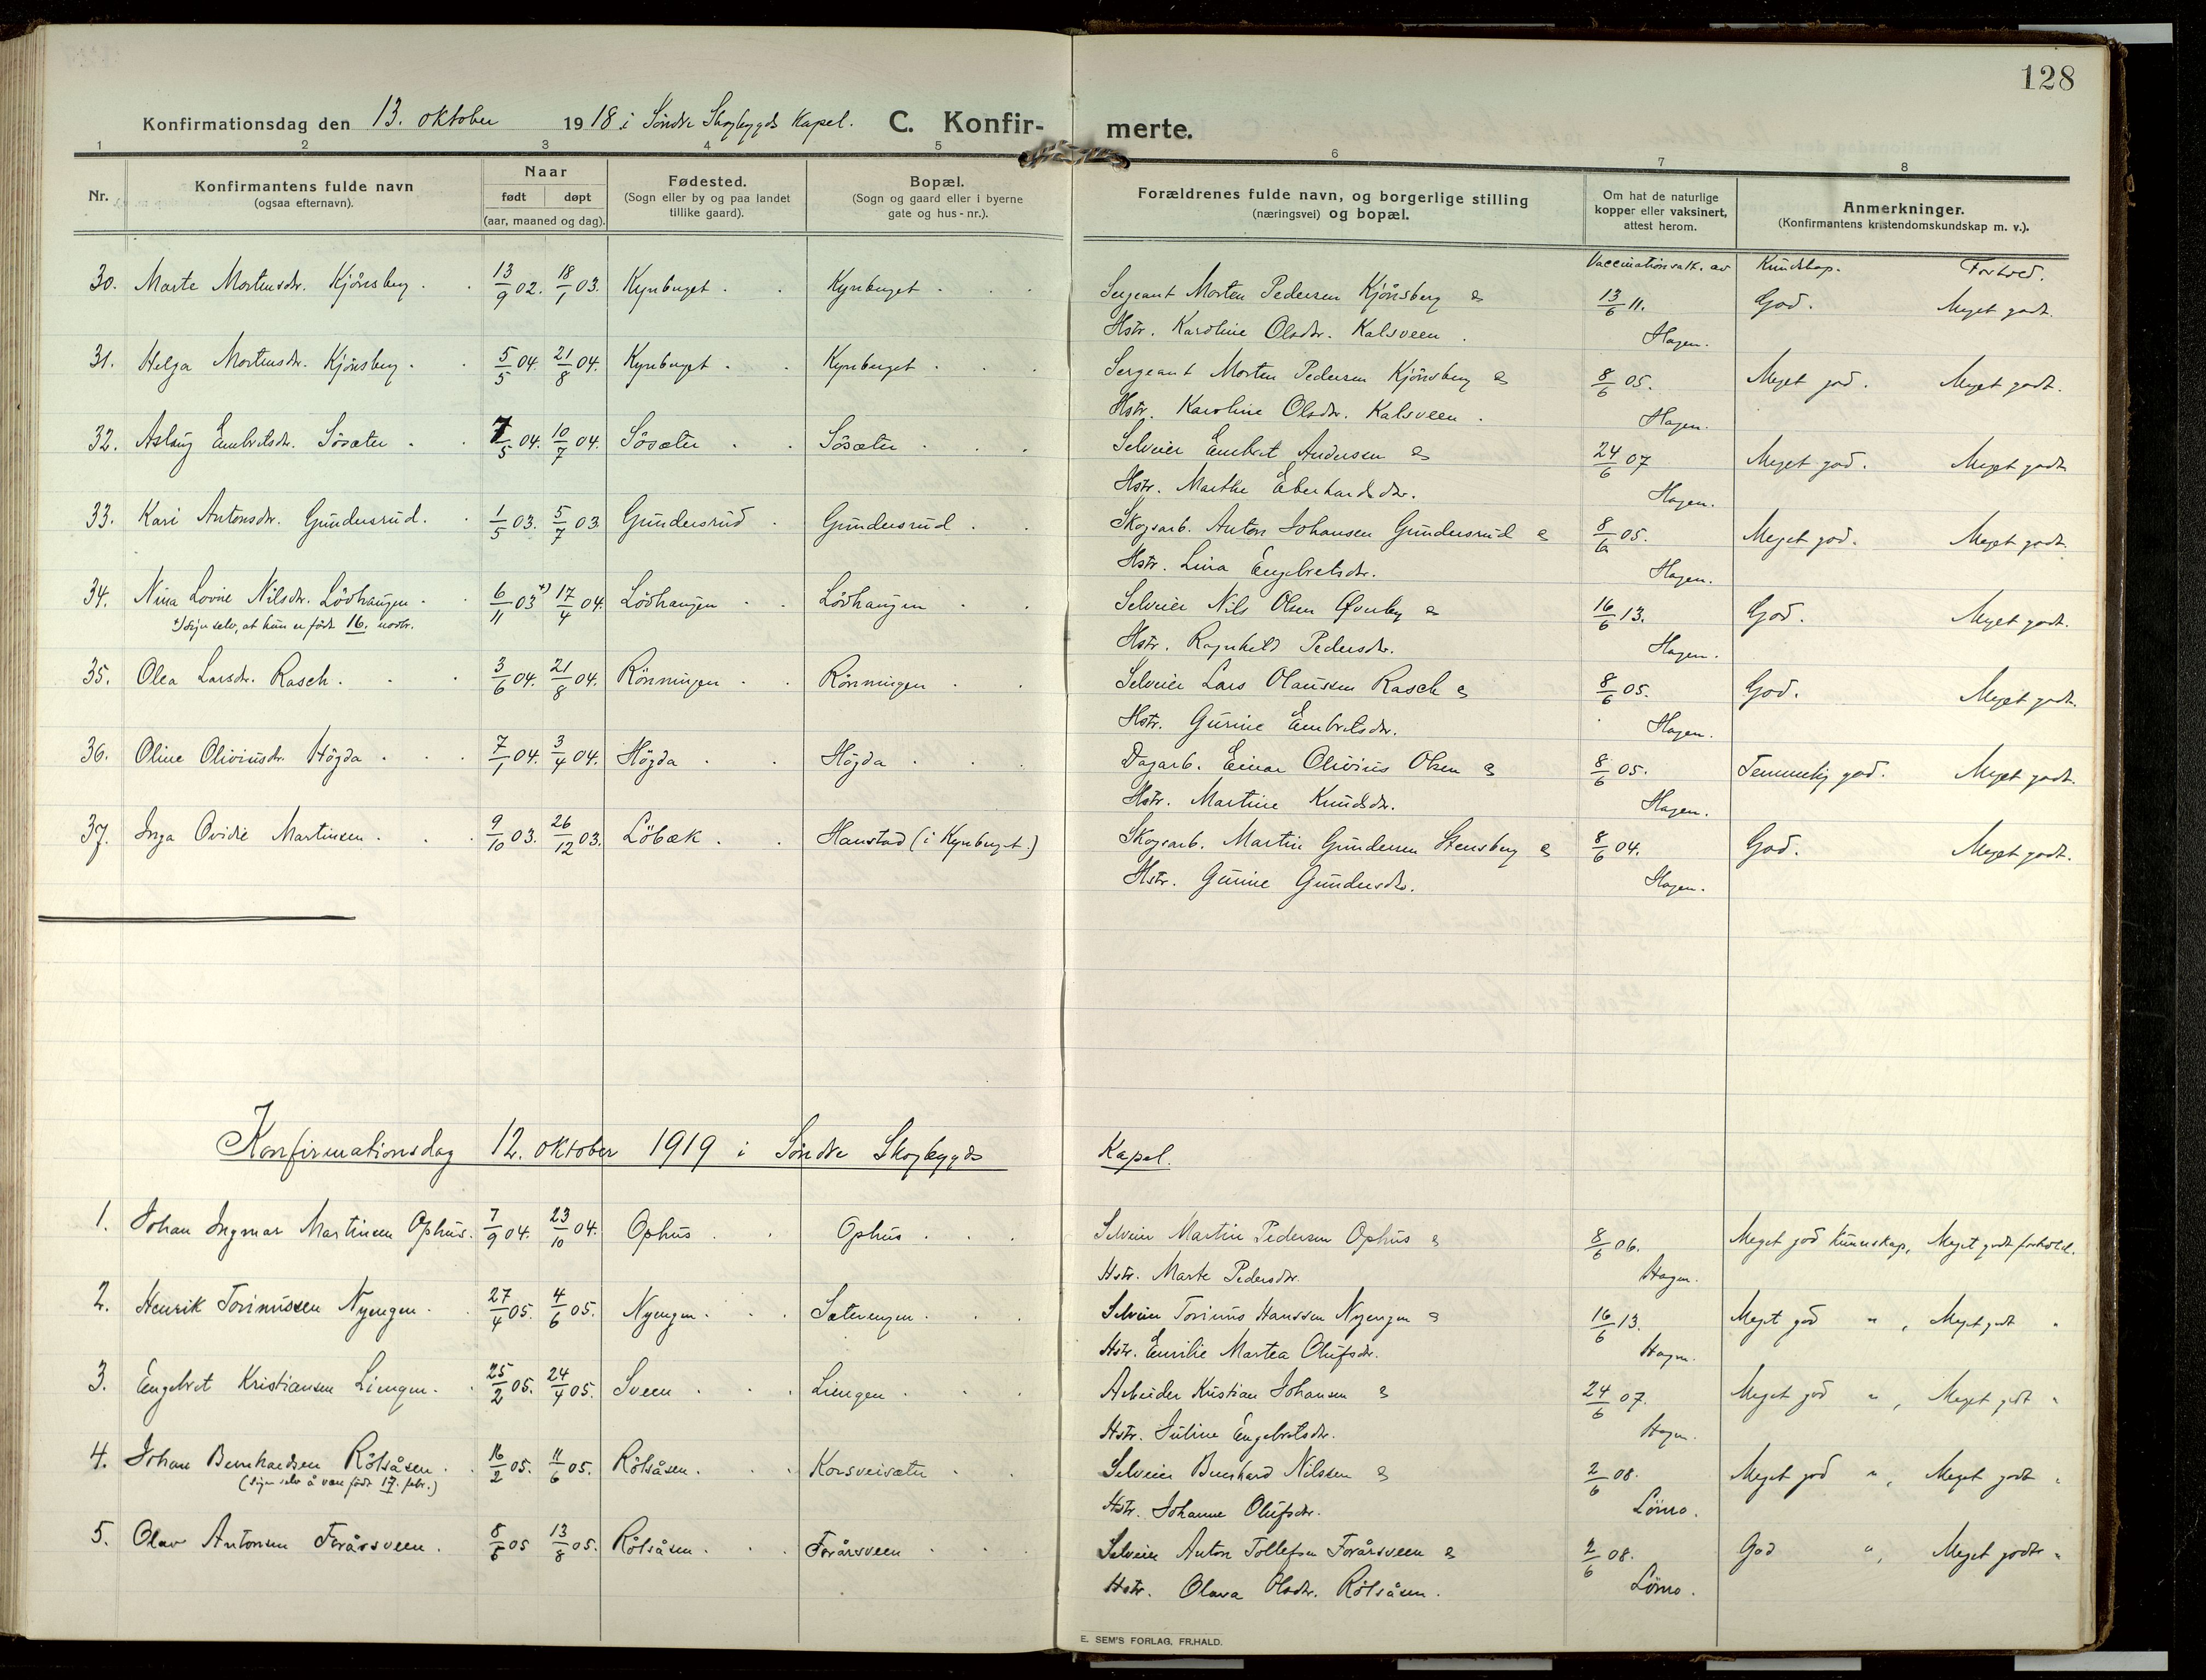 128
Konfirmationsdag den 13. oktober 1918 i Söndre Skogbygds Kapel. C. Konfir- merte.
1 2 3 4 5 6 7 8
Nr. Konfirmantens fulde navn (ogsaa efternavn). Naar født døpt (aar, maaned og dag). Fødested. (Sogn eller by og paa landet tillike gaard). Bopæl. (Sogn og gaard eller i byerne gate og hus-nr.). Forældrenes fulde navn, og borgerlige stilling (næringsvei) og bopæl. Om hat de naturlige kopper eller vaksinert, attest herom. Anmerkninger. (Konfirmantens kristendomskundskap m. v.).
Vaccinationsatt. av Kundskap. Forhold.
30. Marte Mortensdr. Kjönsberg . 13/9 02. 18/1 03. Kynberget . . Kynberget . . . Sergeant Morten Pedersen Kjönsberg & 13/6 11. God. Meget godt.
Hstr. Karoline Olsdtr. Kalsveen . Hagen.
31. Helga Mortensdr. Kjönsberg . . 5/5 04. 21/8 04. Kynberget . . Kynberget . . . Sergeant Morten Pedersen Kjönsberg & 8/6 05. Meget god. Meget godt.
Hstr. Karoline Olsdtr. Kalsveen . Hagen.
32. Aslaug Embretsdr. Sösæter . . 7/5 04. 10/7 04. Sösæter . . Sösæter . . . Selveier Embret Andersen & 24/6 07 Meget god. Meget godt
Hstr. Marthe Eberhardsdtr. Hagen.
33. Kari Antonsdr. Gundersrud. . 1/5 03. 5/7 03 Gundersrud . Gundersrud . . Skogsarb. Anton Johansen Gundersrud & 8/6 05. Meget god. Meget godt.
Hstr. Lina Engebretsdtr. Hagen.
34. Nina Lovise Nilsdr. Lövhaugen . . 6/11 03 *) 17/4 04. Lövhaugen . . Lövhaugen . . Selveier Nils Olsen Øverby & 16/6 13. God. Meget godt.
*) Siger selv, at hun er født 16. novbr. Hstr. Ragnhild Pedersdtr. Hagen.
35. Olea Larsdr. Rasch . . . 3/6 04. 21/8 04. Rönningen . . Rönningen . . Selveier Lars Olaussen Rasch & 8/6 05. God. Meget godt.
Hstr. Gurine Embretsdtr. Hagen.
36. Oline Oliviusdr. Högda . . . 7/1 04. 3/4 04. Högda . . Högda . . . Dagarb. Einar Olivius Olsen & 8/6 05. Temmelig god. Meget godt.
Hstr. Martine Knudsdtr. Hagen.
37. Inga Ovidie Martinsen . . . 9/10 03. 26/12 03. Löbæk . . Hanstad (i Kynberget.) Skogsarb. Martin Gundersen Stensberg & 8/6 04. God. Meget godt.
Hstr. Gurine Gundersdtr. Hagen.
Konfirmationsdag 12. oktober 1919 i Söndre Skogbygds Kapel.
1. Johan Ingmar Martinsen Ophus. 7/9 04. 23/10 04. Ophus . . Ophus . . . Selveier Martin Pedersen Ophus & 8/6 06. Meget god kundskap, Meget godt forhold.
Hstr. Marte Pedersdtr. Hagen.
2. Henrik Torinussen Nyengen . . 27/4 05. 4/6 05. Nyengen . . . Seterengen . . . Selveier Torinus Hanssen Nyengen & 16/6 13. Meget god " , Meget godt "
Hstr. Emilie Martea Olufsdtr. Hagen.
3. Engebret Kristiansen Liengen . . 25/2 05. 24/4 05. Sveen . . . Liengen . . . Arbeider Kristian Johansen & 24/6 07. Meget god " , Meget godt "
Hstr. Juline Engebretsdtr. Hagen.
4. Johan Bernhardsen Rölsåsen . . 16/2 05. 11/6 05. Rölsåsen . . . Korsveisæter . . Selveier Bernhard Nilssen & 2/6 08. Meget god " , Meget godt "
(siger selv å være født 17. febr.) Hstr. Johanne Olufsdtr. Lömo.
5. Olav Antonsen Forårsveen . 8/6 05 13/8 05. Rölsåsen . . . Forårsveen . . . Selveier Anton Tollefsen Forårsveen & 2/6 08. God " , Meget godt "
Hstr. Olava Olsdtr. Rölsåsen . Lömo.
E. SEM'S FORLAG, FR.HALD.